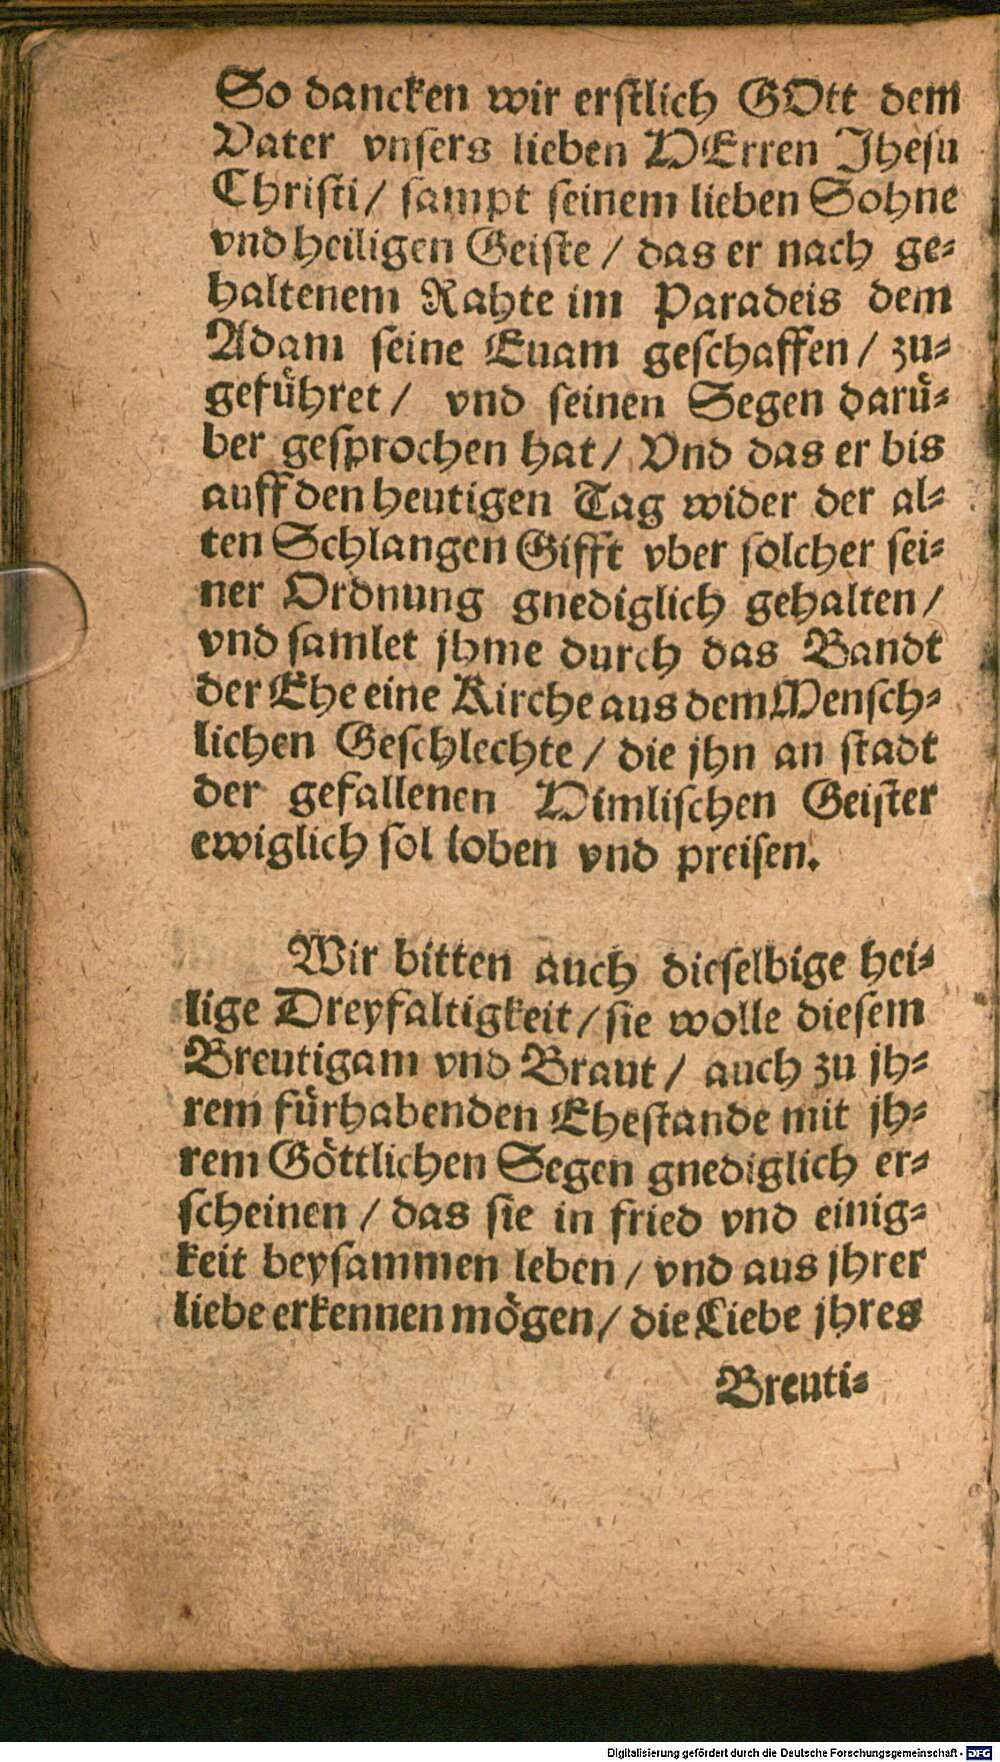 So dancken wir erstlich GOtt dem
Vater vnsers lieben HErren Jhesu
Christi/ sampt seinem lieben Sohne
vnd heiligen Geiste / das er nach ge-
haltenem Rahte im Paradeis dem
Adam seine Euam geschaffen / zu-
geführet / vnd seinen Segen darü-
ber gesprochen hat / Vnd das er bis
auff den heutigen Tag wider der al-
ten Schlangen Gifft vber solcher sei-
ner Ordnung gnediglich gehalten /
vnd samlet jhme durch das Bandt
der Ehe eine Kirche aus dem Mensch-
lichen Geschlechte / die jhn an stadt
der gefallenen Himlischen Geister
ewiglich sol loben vnd preisen.
Wir bitten auch dieselbige hei-
lige Dreyfaltigkeit / sie wolle diesem
Breutigam vnd Braut / auch zu jh-
rem fürhabenden Ehestande mit jh-
rem Göttlichen Segen gnediglich er-
scheinen / das sie in fried vnd einig-
keit beysammen leben / vnd aus jhrer
liebe erkennen mögen / die Liebe jhres
Breuti-
Digitalisierung gefördert durch die Deutsche Forschungsgemeinschaft - DFG